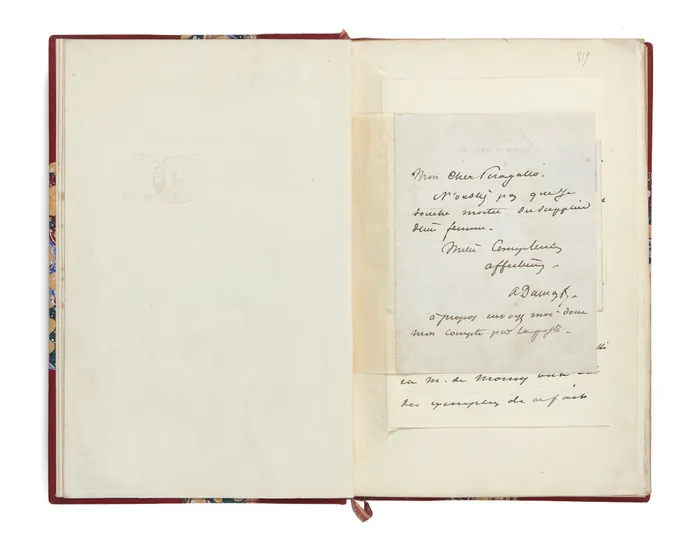 319
Mon cher Peragallo.
N'oubliez pas que je
touche moitié du Supplice
d'une femme.
Mille Compliments
affectueux.
ADumasf.
à propos envoyez moi donc
mon compte par la poste.
M. de Morny
des exemples de ce fait